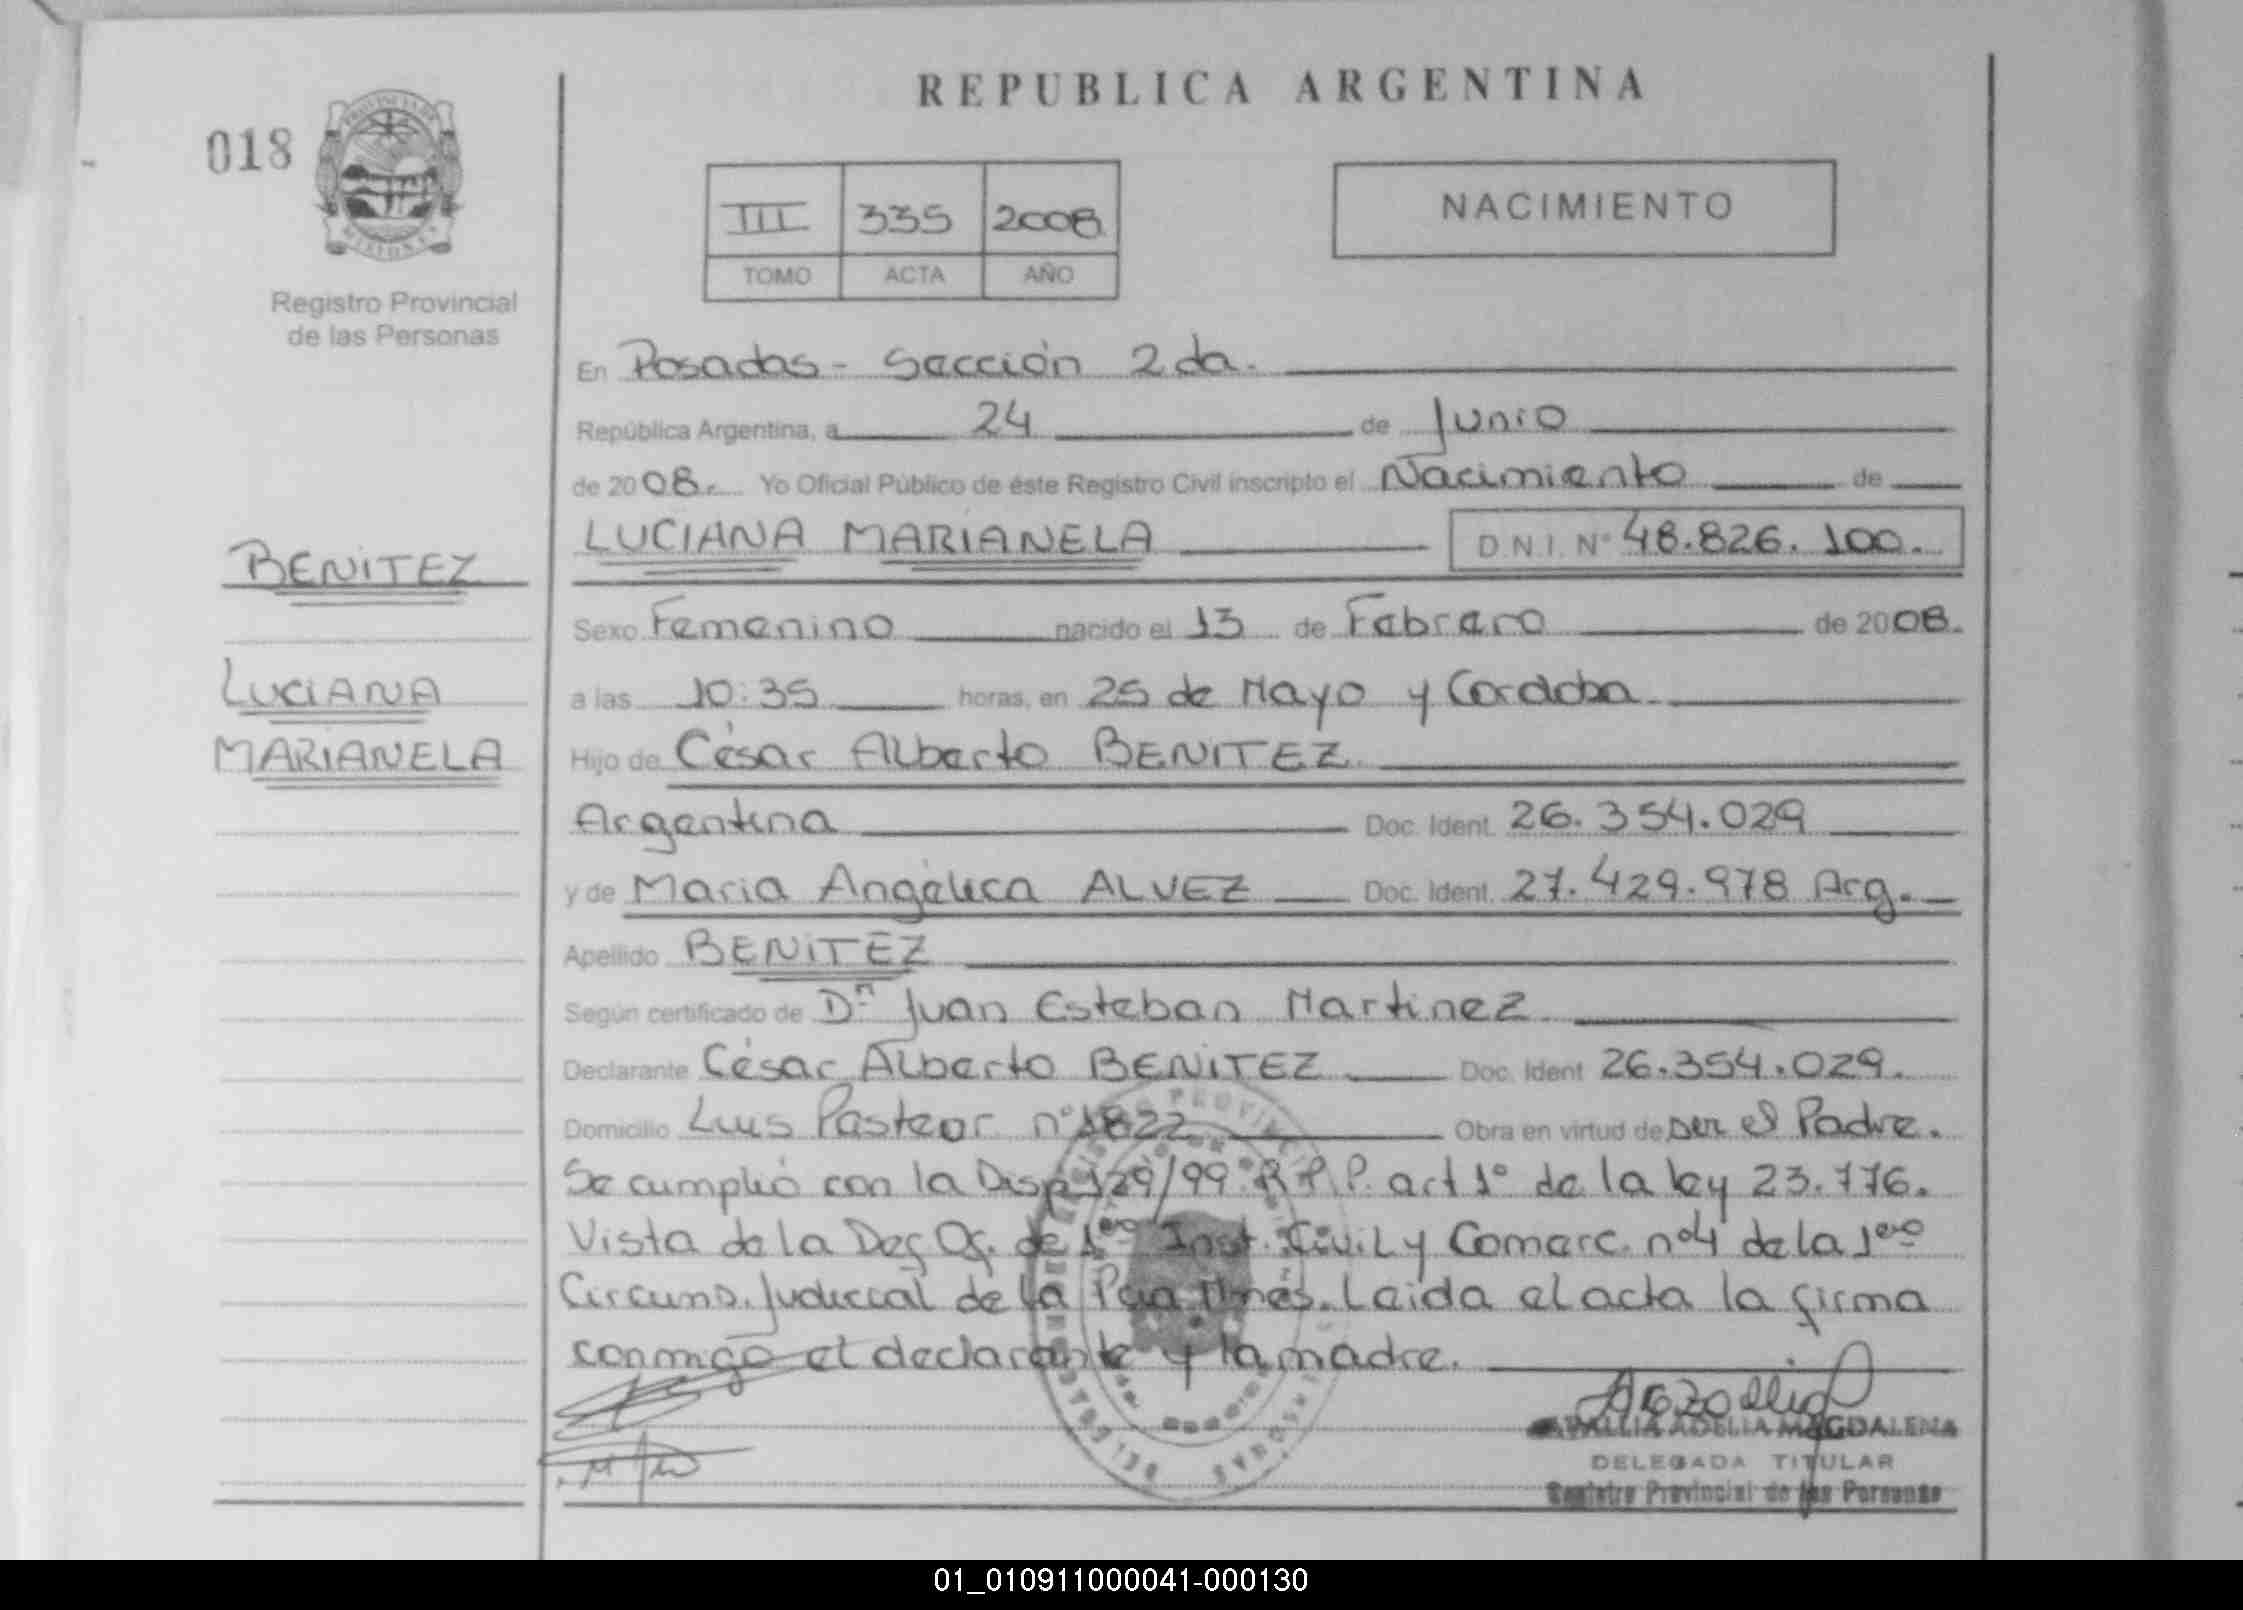 REPUBLICA ARGENTINA
018
PROVINCIA DE
MISIONES
Registro Provincial
de las Personas
III 335 2008
TOMO ACTA AÑO
NACIMIENTO
En Posadas - Sección 2da.
República Argentina, a 24 de Junio
de 2008. Yo Oficial Público de éste Registro Civil inscripto el Nacimiento de
LUCIANA MARIANELA D.N.I. Nº 48.826.100.
BENITEZ
Sexo Femenino nacido el 13 de Febrero de 2008.
LUCIANA
a las 10:35 horas, en 25 de Mayo y Cordoba
MARIANELA
Hijo de César Alberto BENITEZ
Argentina Doc. Ident. 26.354.029
y de Maria Angélica ALVEZ Doc. Ident. 27.429.978 Arg.
Apellido BENITEZ
Según certificado de Dn Juan Esteban Martinez
Declarante César Alberto BENITEZ Doc. Ident 26.354.029.
Domicilio Luis Pasteor nº1822 Obra en virtud de ser el Padre.
Se cumplió con la Disp 129/99 R.P.P. art 1º de la ley 23.776.
Vista de la Def Of. de 1ero Inst. Civil y Comerc. nº4 de la 1ero
Circuns. Judicial de la Pcia Mnes. Leida el acta la firma
conmigo el declarante y la madre.
ADELIA MAGDALENA
DELEGADA TITULAR
Registro Provincial de las Personas
01_010911000041-000130